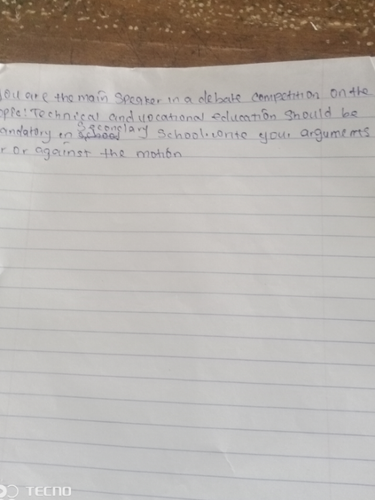 you are the main speaker in a debate competition on the
opic: Technical and vocational education should be
andatory in secondary school. write your arguments
r or against the motion
TECNO